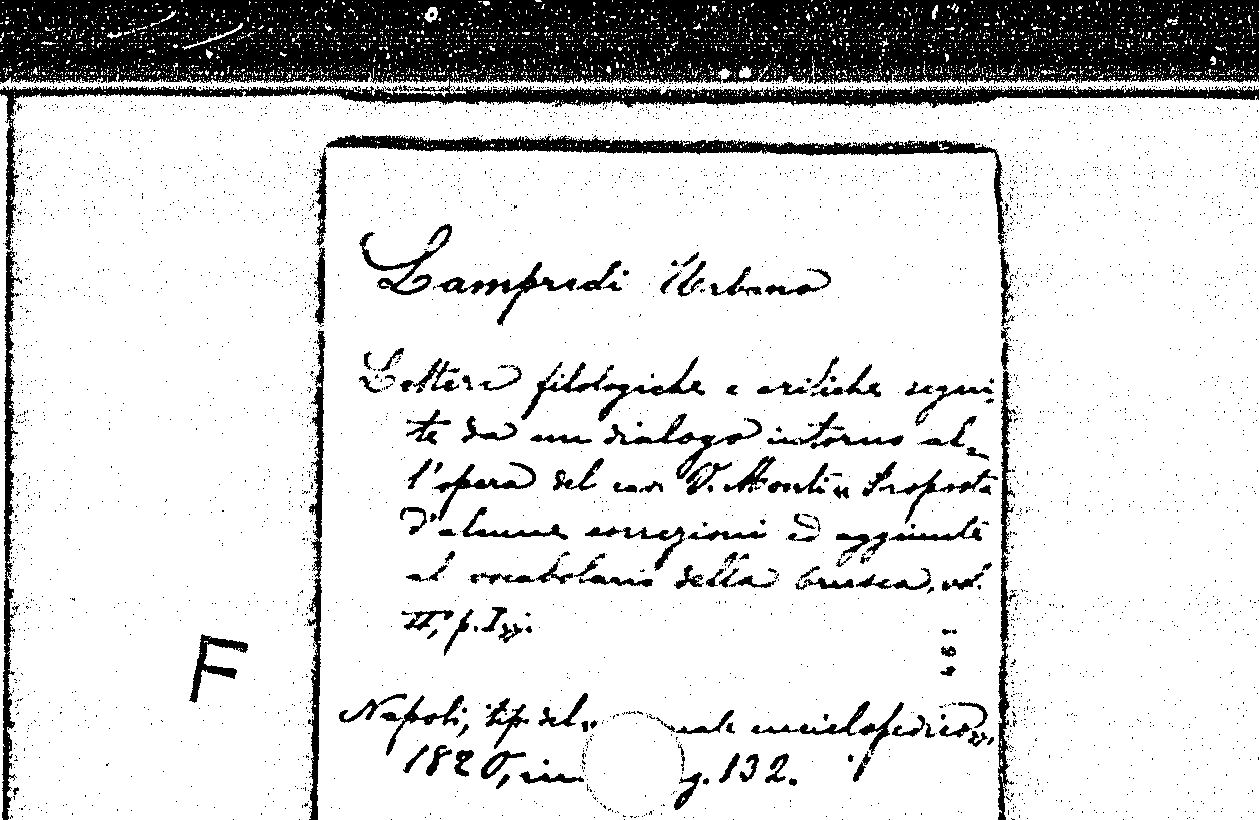 Lampredi Urbano
Lettere filologiche e critiche segui-
te da un dialogo intorno al-
l'opera del cav. V. Monti « Proposta
d'alcune correzioni ed aggiunte
al vocabolario della Crusca, vol.
II, p. I».
F
Napoli, tip. del « nale enciclopedico»,
1820, in g. 132.